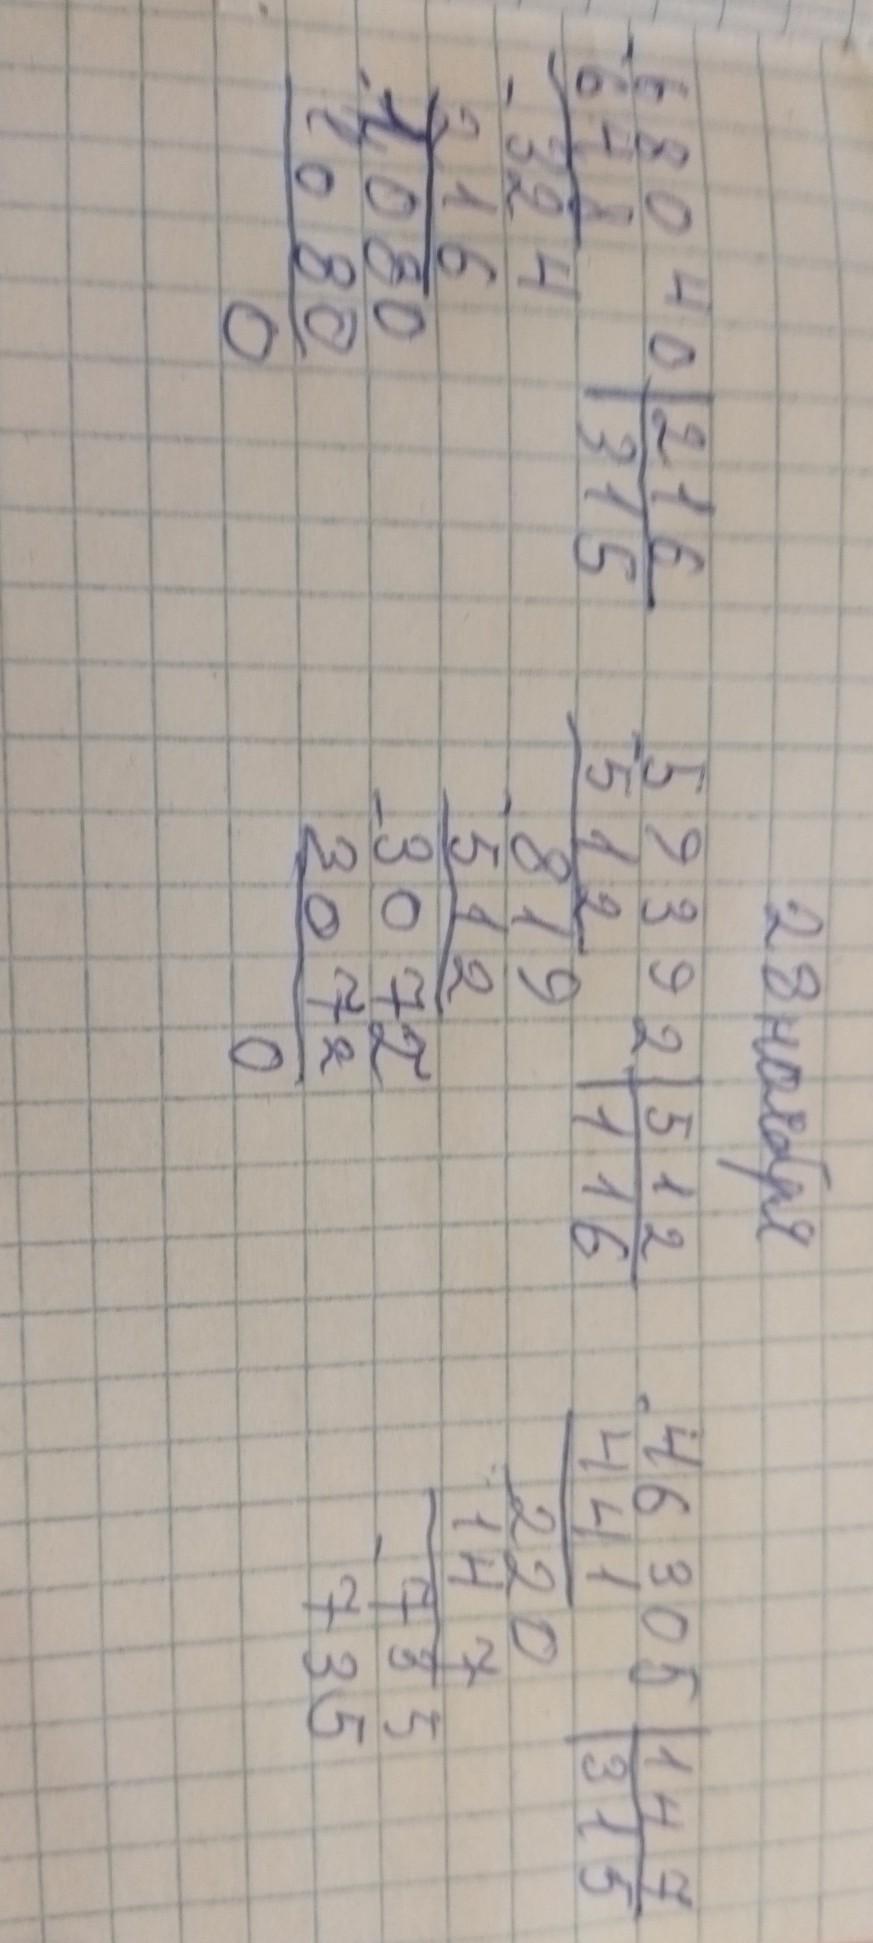 28 ноября
-68040|216
648 |315
-324
216
-1080
1080
0
-59392|512
-512 |116
-819
512
-3072
3072
0
-46305|147
441 |315
220
-147
-735
735